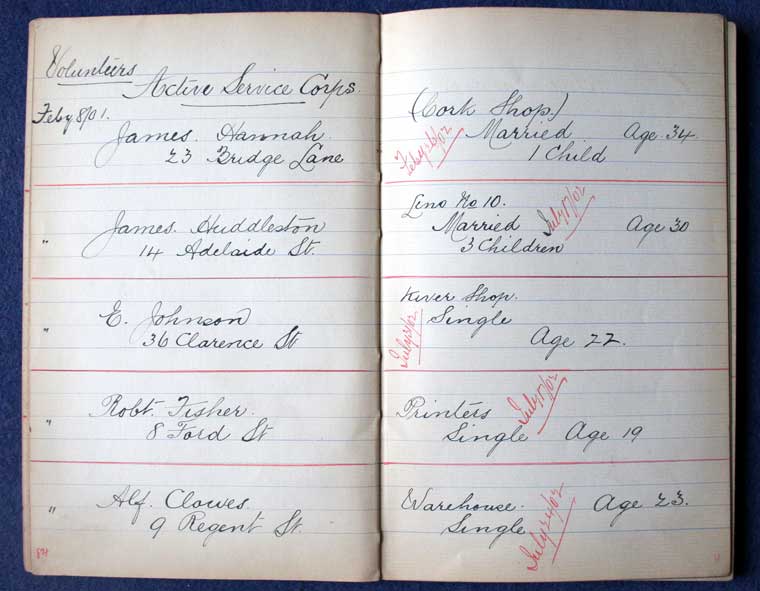 Volunteers
Active Service Corps.
Feby 8/01.
James. Hannah.
23 Bridge Lane
" James. Huddleston
14 Adelaide St.
" E. Johnson
36 Clarence St
" Robt. Fisher.
8 Ford St
" Alf. Clowes.
9 Regent St.
(Cork Shop)
Married Age 34
1 Child
Lino No 10.
Married July 17/02 Age 30
3 Children
Kiver Shop.
Single
Age 22.
Printers
Single Age 19
Warehouse. Age 23.
Single
July 24/02